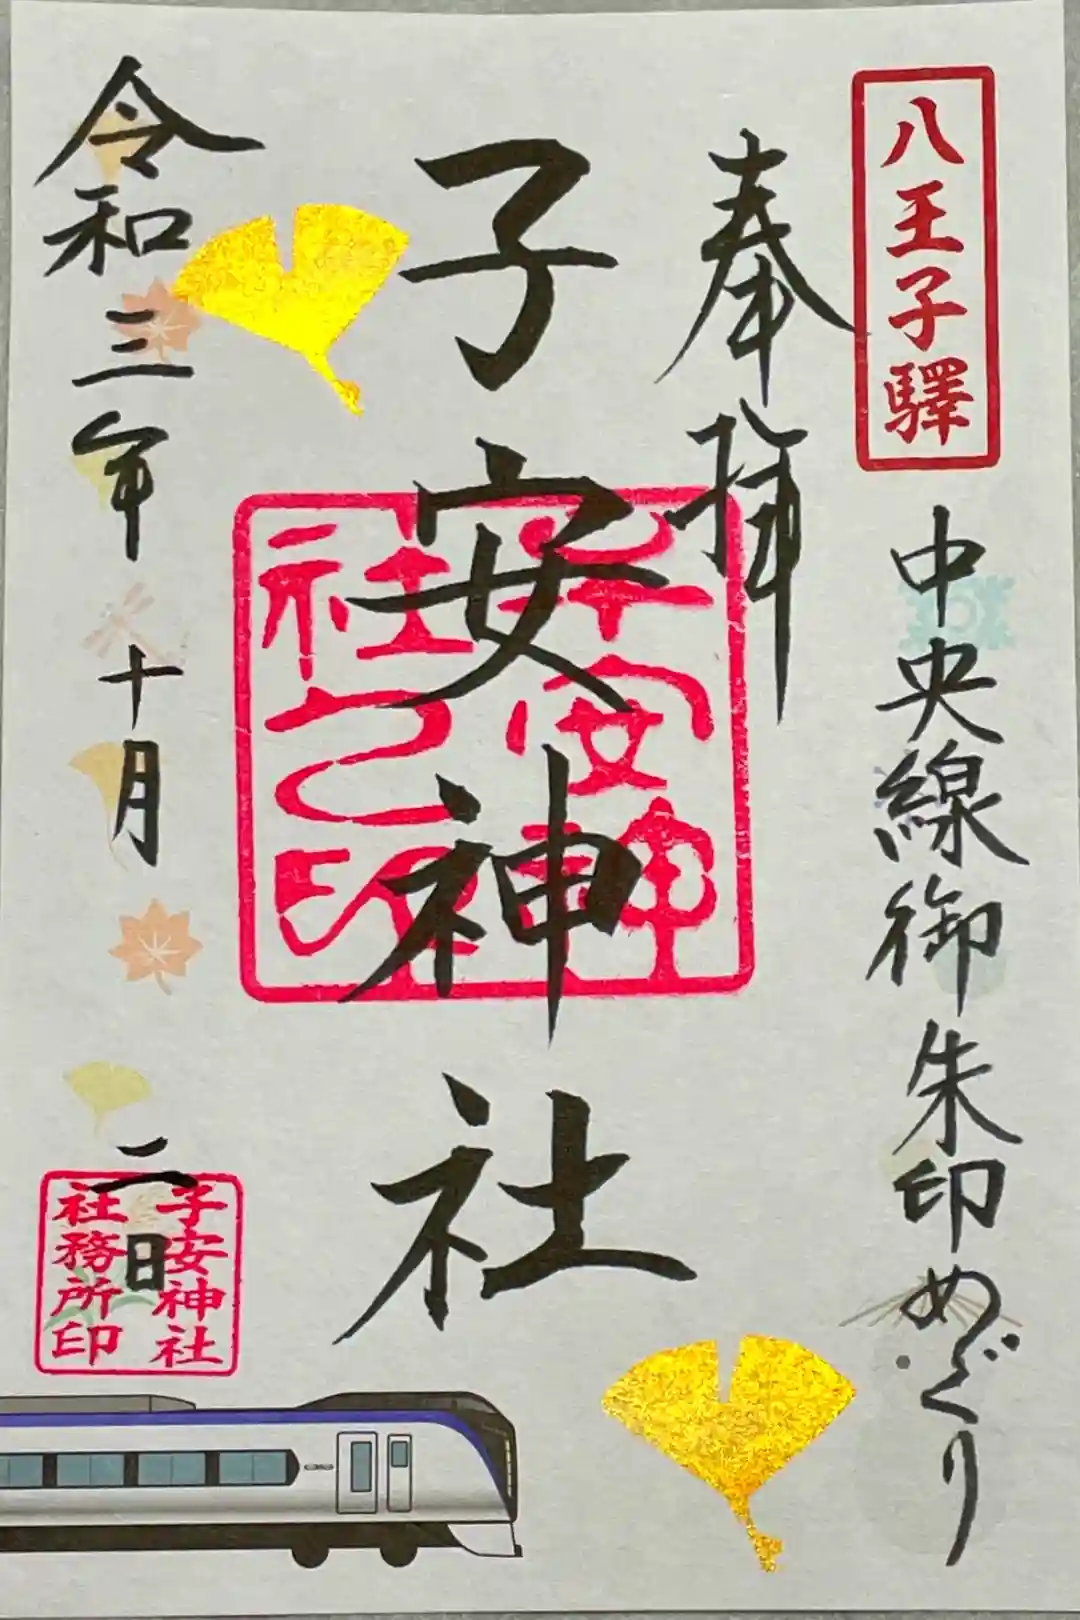 八王子驛
中央線御朱印めぐり
奉拝
子安神社
子安神
社之印
令和三年十月二日
子安神社
社務所印